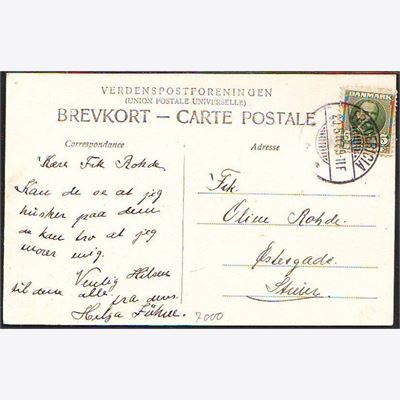 VERDENSPOSTFORENINGEN
(UNION POSTALE UNIVERSELLE)
BREVKORT — CARTE POSTALE
Correspondance
Kære Frk Rohde
Kan de se at jeg
husker paa dem
de kan tro at jeg
morer mig.
Venlig Hilsen
til dem alle fra deres
Helga
7000
Adresse
Frk.
Oline Rohde.
Østergade.
Struer
DANMARK
FREDERICIA